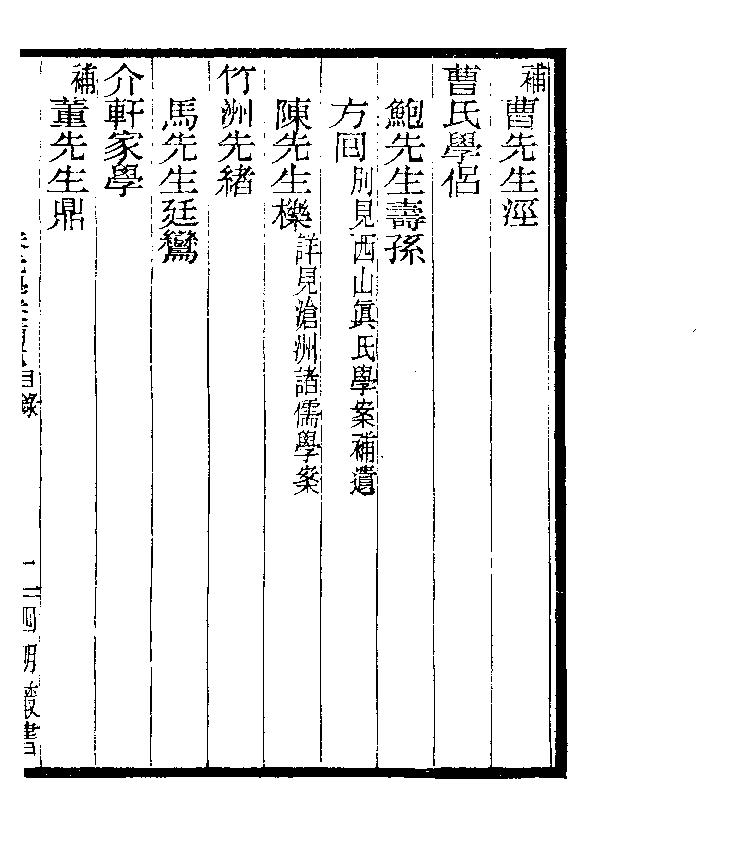 補曹先生涇
曹氏學侶
鮑先生壽孫
方回別見西山眞氏學案補遺
陳先生櫟詳見滄洲諸儒學案
竹洲先緖
馬先生廷鸞
介軒家學
補董先生鼎
目錄 二四明叢書